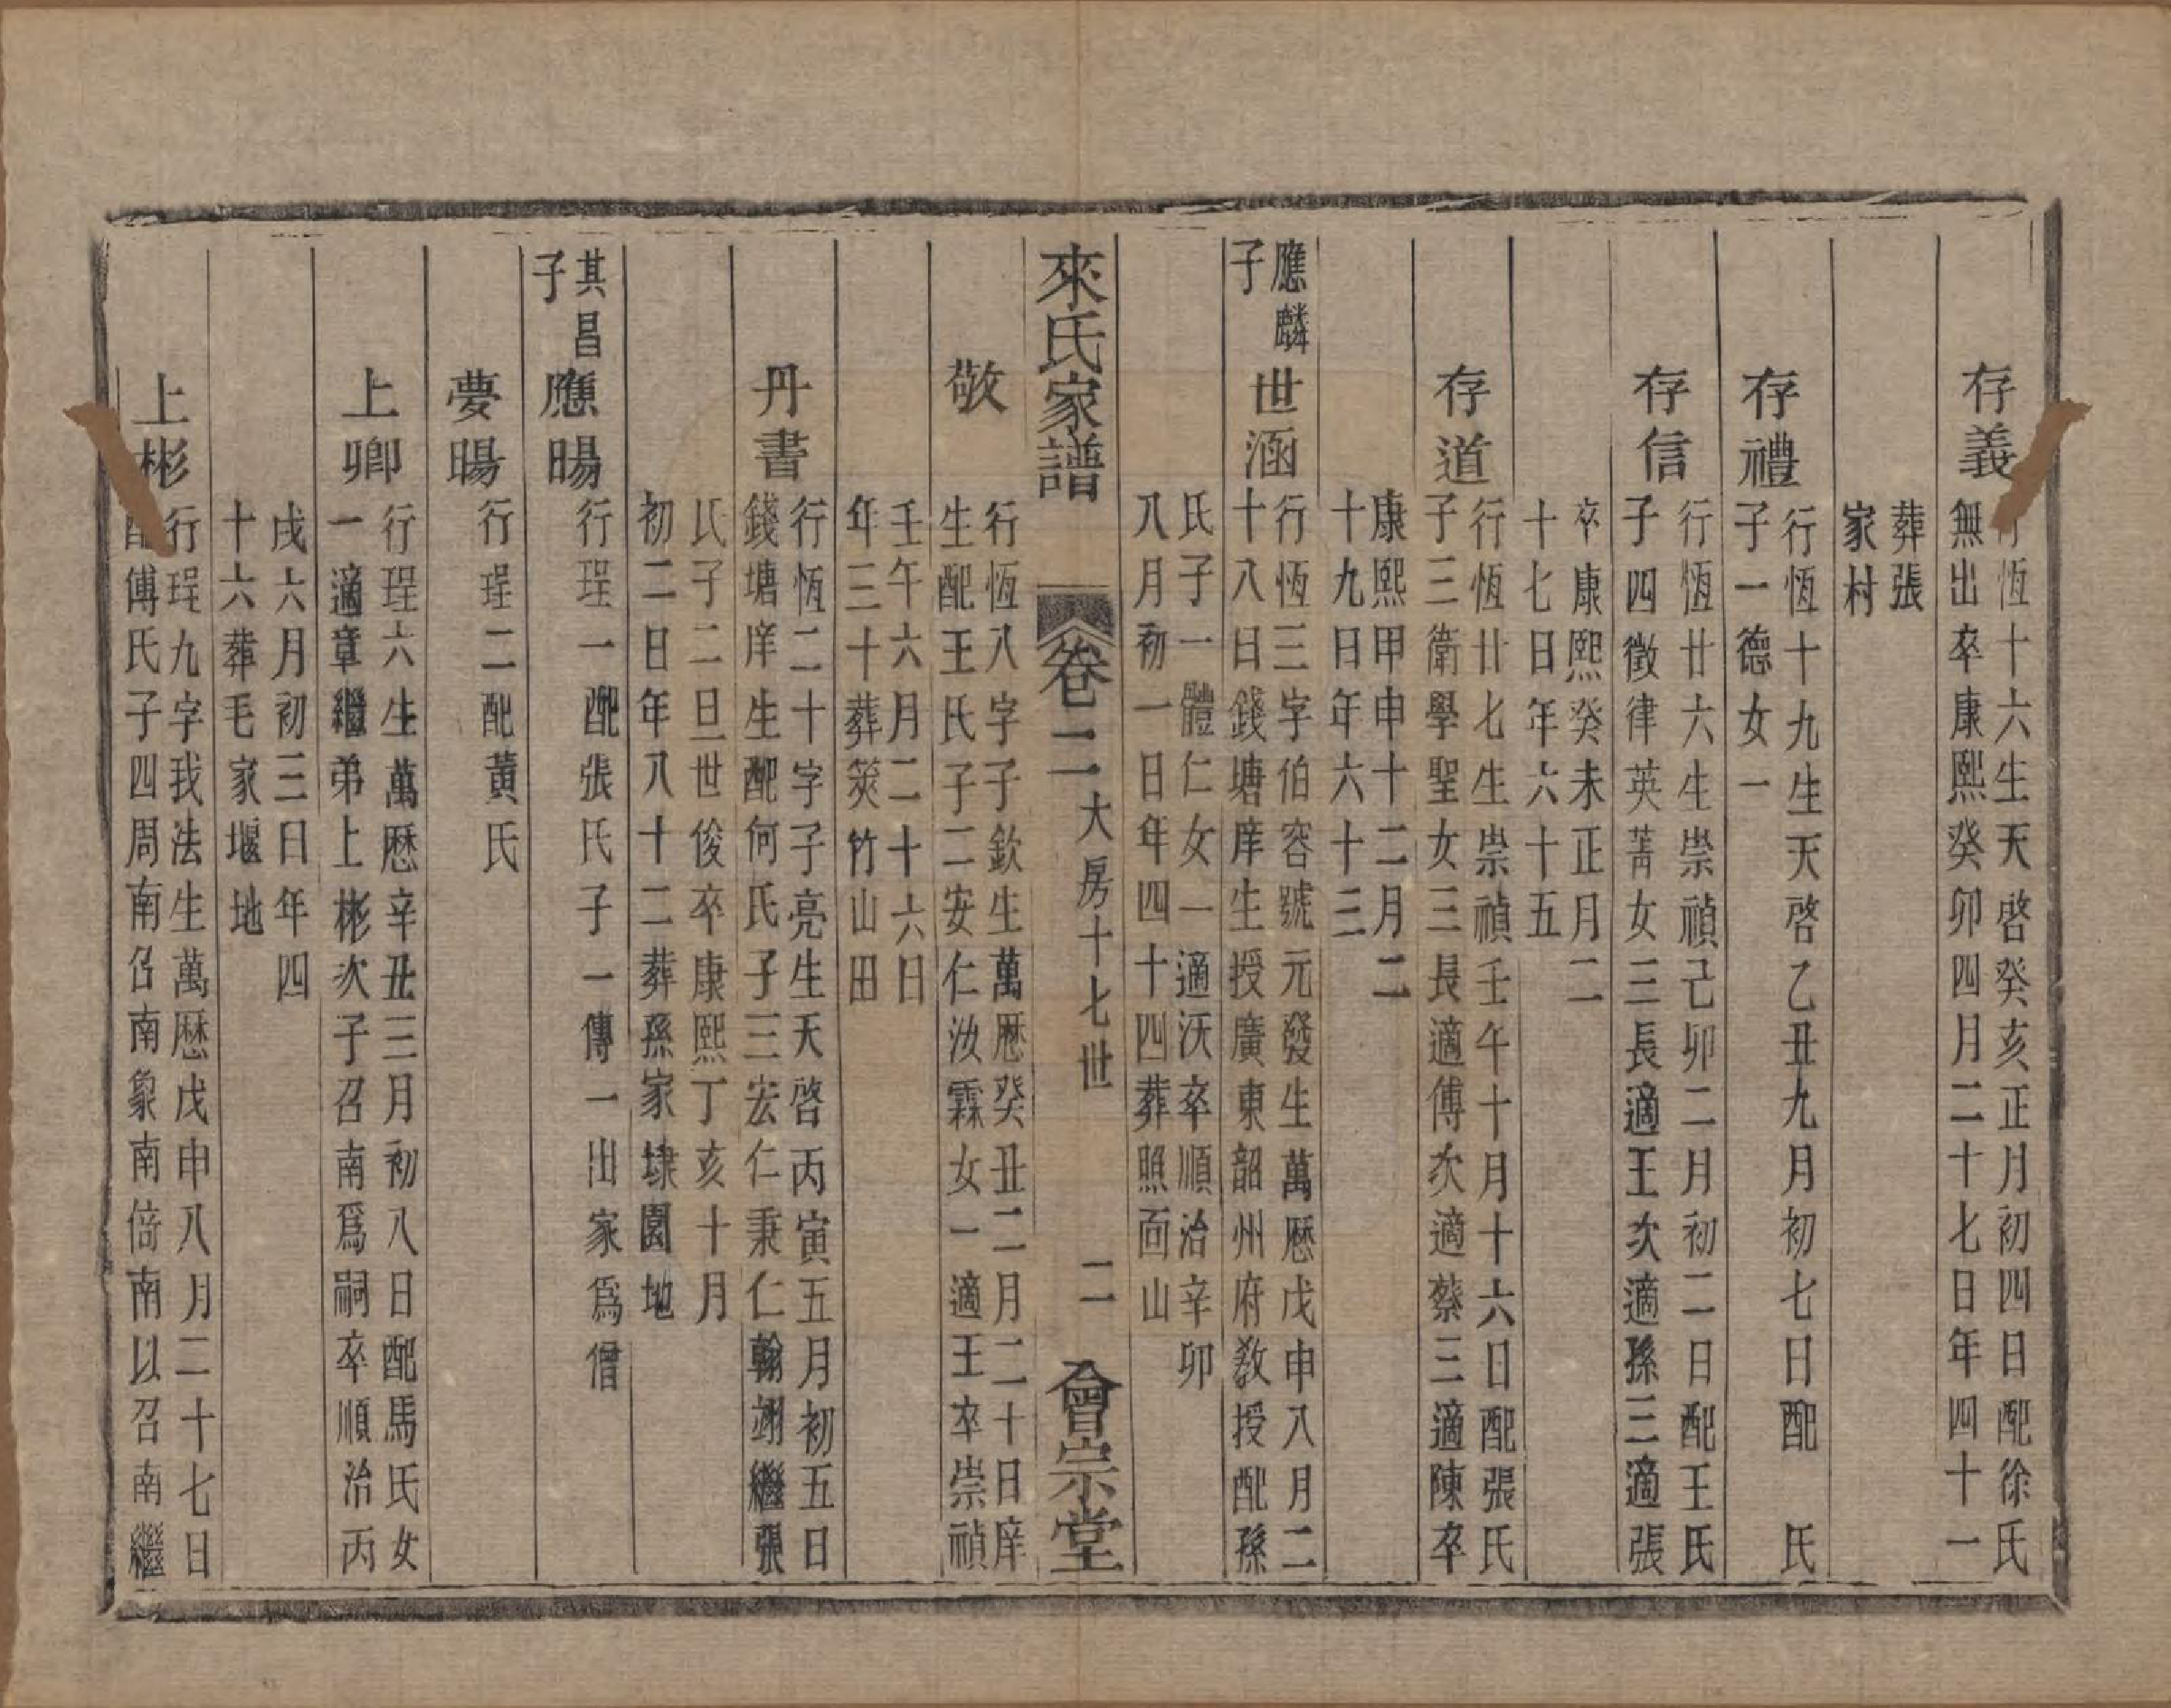 存義
行恆十六生天啓癸亥正月初四日配徐氏
無出卒康熙癸卯四月二十七日年四十一
葬張
家村
存禮
行恆十九生天啓乙丑九月初七日配　氏
子一德女一
存信
行恆廿六生崇禎己卯二月初二日配王氏
子四徵律英菁女三長適王次適孫三適張
卒康熙癸未正月二
十七日年六十五
存道
行恆廿七生崇禎壬午十月十六日配張氏
子三衛學聖女三長適傅次適蔡三適陳卒
康熙甲申十二月二
十九日年六十三
應麟
子
世涵
行恆三字伯容號元發生萬曆戊申八月二
十八日錢塘庠生授廣東韶州府教授配孫
氏子一體仁女一適沃卒順治辛卯
八月初一日年四十四葬照面山
來氏家譜
卷二
大房十七世
二
會宗堂
敬
行恆八字子欽生萬曆癸丑二月二十日庠
生配王氏子二安仁汝霖女一適王卒崇禎
壬午六月二十六日
年三十葬筴竹山田
丹書
行恆二十字子亮生天啓丙寅五月初五日
錢塘庠生配何氏子三宏仁秉仁翰翊繼張
氏子二旦世俊卒康熙丁亥十月
初二日年八十二葬孫家埭園地
其昌
子
應暘
行珵一配張氏子一傳一出家爲僧
夢暘
行珵二配黃氏
上卿
行珵六生萬曆辛丑三月初八日配馬氏女
一適章繼弟上彬次子召南爲嗣卒順治丙
戌六月初三日年四
十六葬毛家堰地
上彬
行珵九字我法生萬曆戊申八月二十七日
配傅氏子四周南召南象南倍南以召南繼